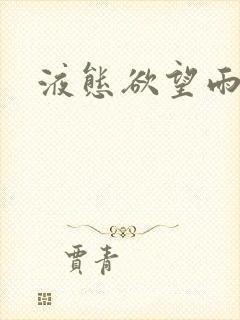 液態欲望雨
賈青